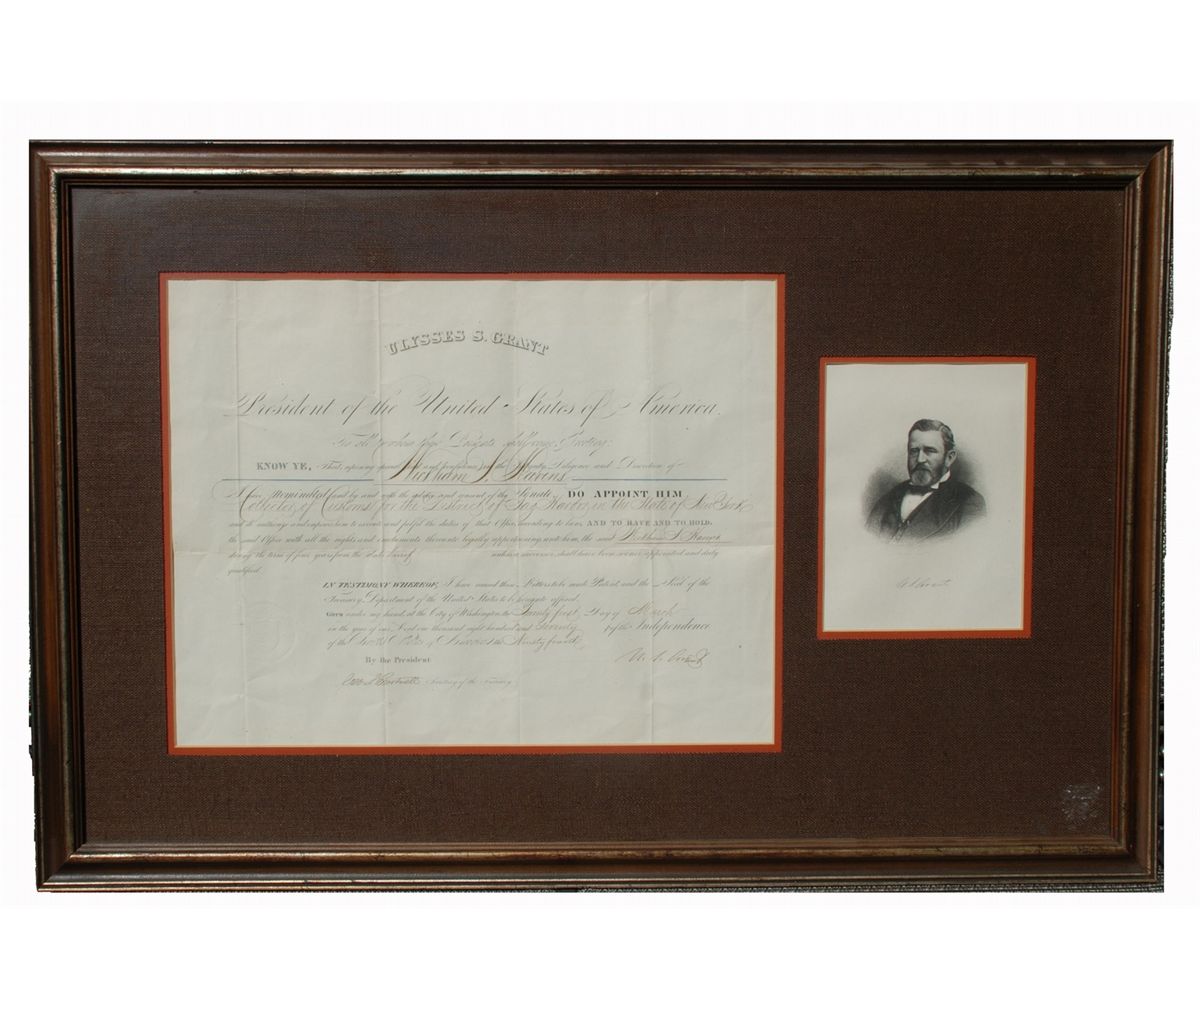 ULYSSES S. GRANT
President of the United States of America.
To all to whom these Presents shall come, Greeting:
KNOW YE, That, reposing special trust and confidence in the Integrity, Diligence and Discretion of
Wickham S. Havens
I have Nominated and by and with the advice and consent of the Senate DO APPOINT HIM
Collector of Customs for the District of Sag Harbor, in the State of New York
and do authorize and empower him to execute and fulfil the duties of that Office according to law, AND TO HAVE AND TO HOLD,
the said Office with all the rights and emoluments thereunto legally appertaining, unto him, the said Wickham S. Havens
during the term of four years from the date hereof unless sooner appointed and duly
qualified.
IN TESTIMONY WHEREOF, I have caused these Letters to be made Patent, and the Seal of the
Treasury Department of the United States to be hereunto affixed.
GIVEN under my hand, at the City of Washington, the Twenty first Day of March
in the year of our Lord one thousand eight hundred and Seventy of the Independence
of the United States of America the Ninety fourth
By the President
U. S. Grant
Secretary of the Treasury
U. S. Grant